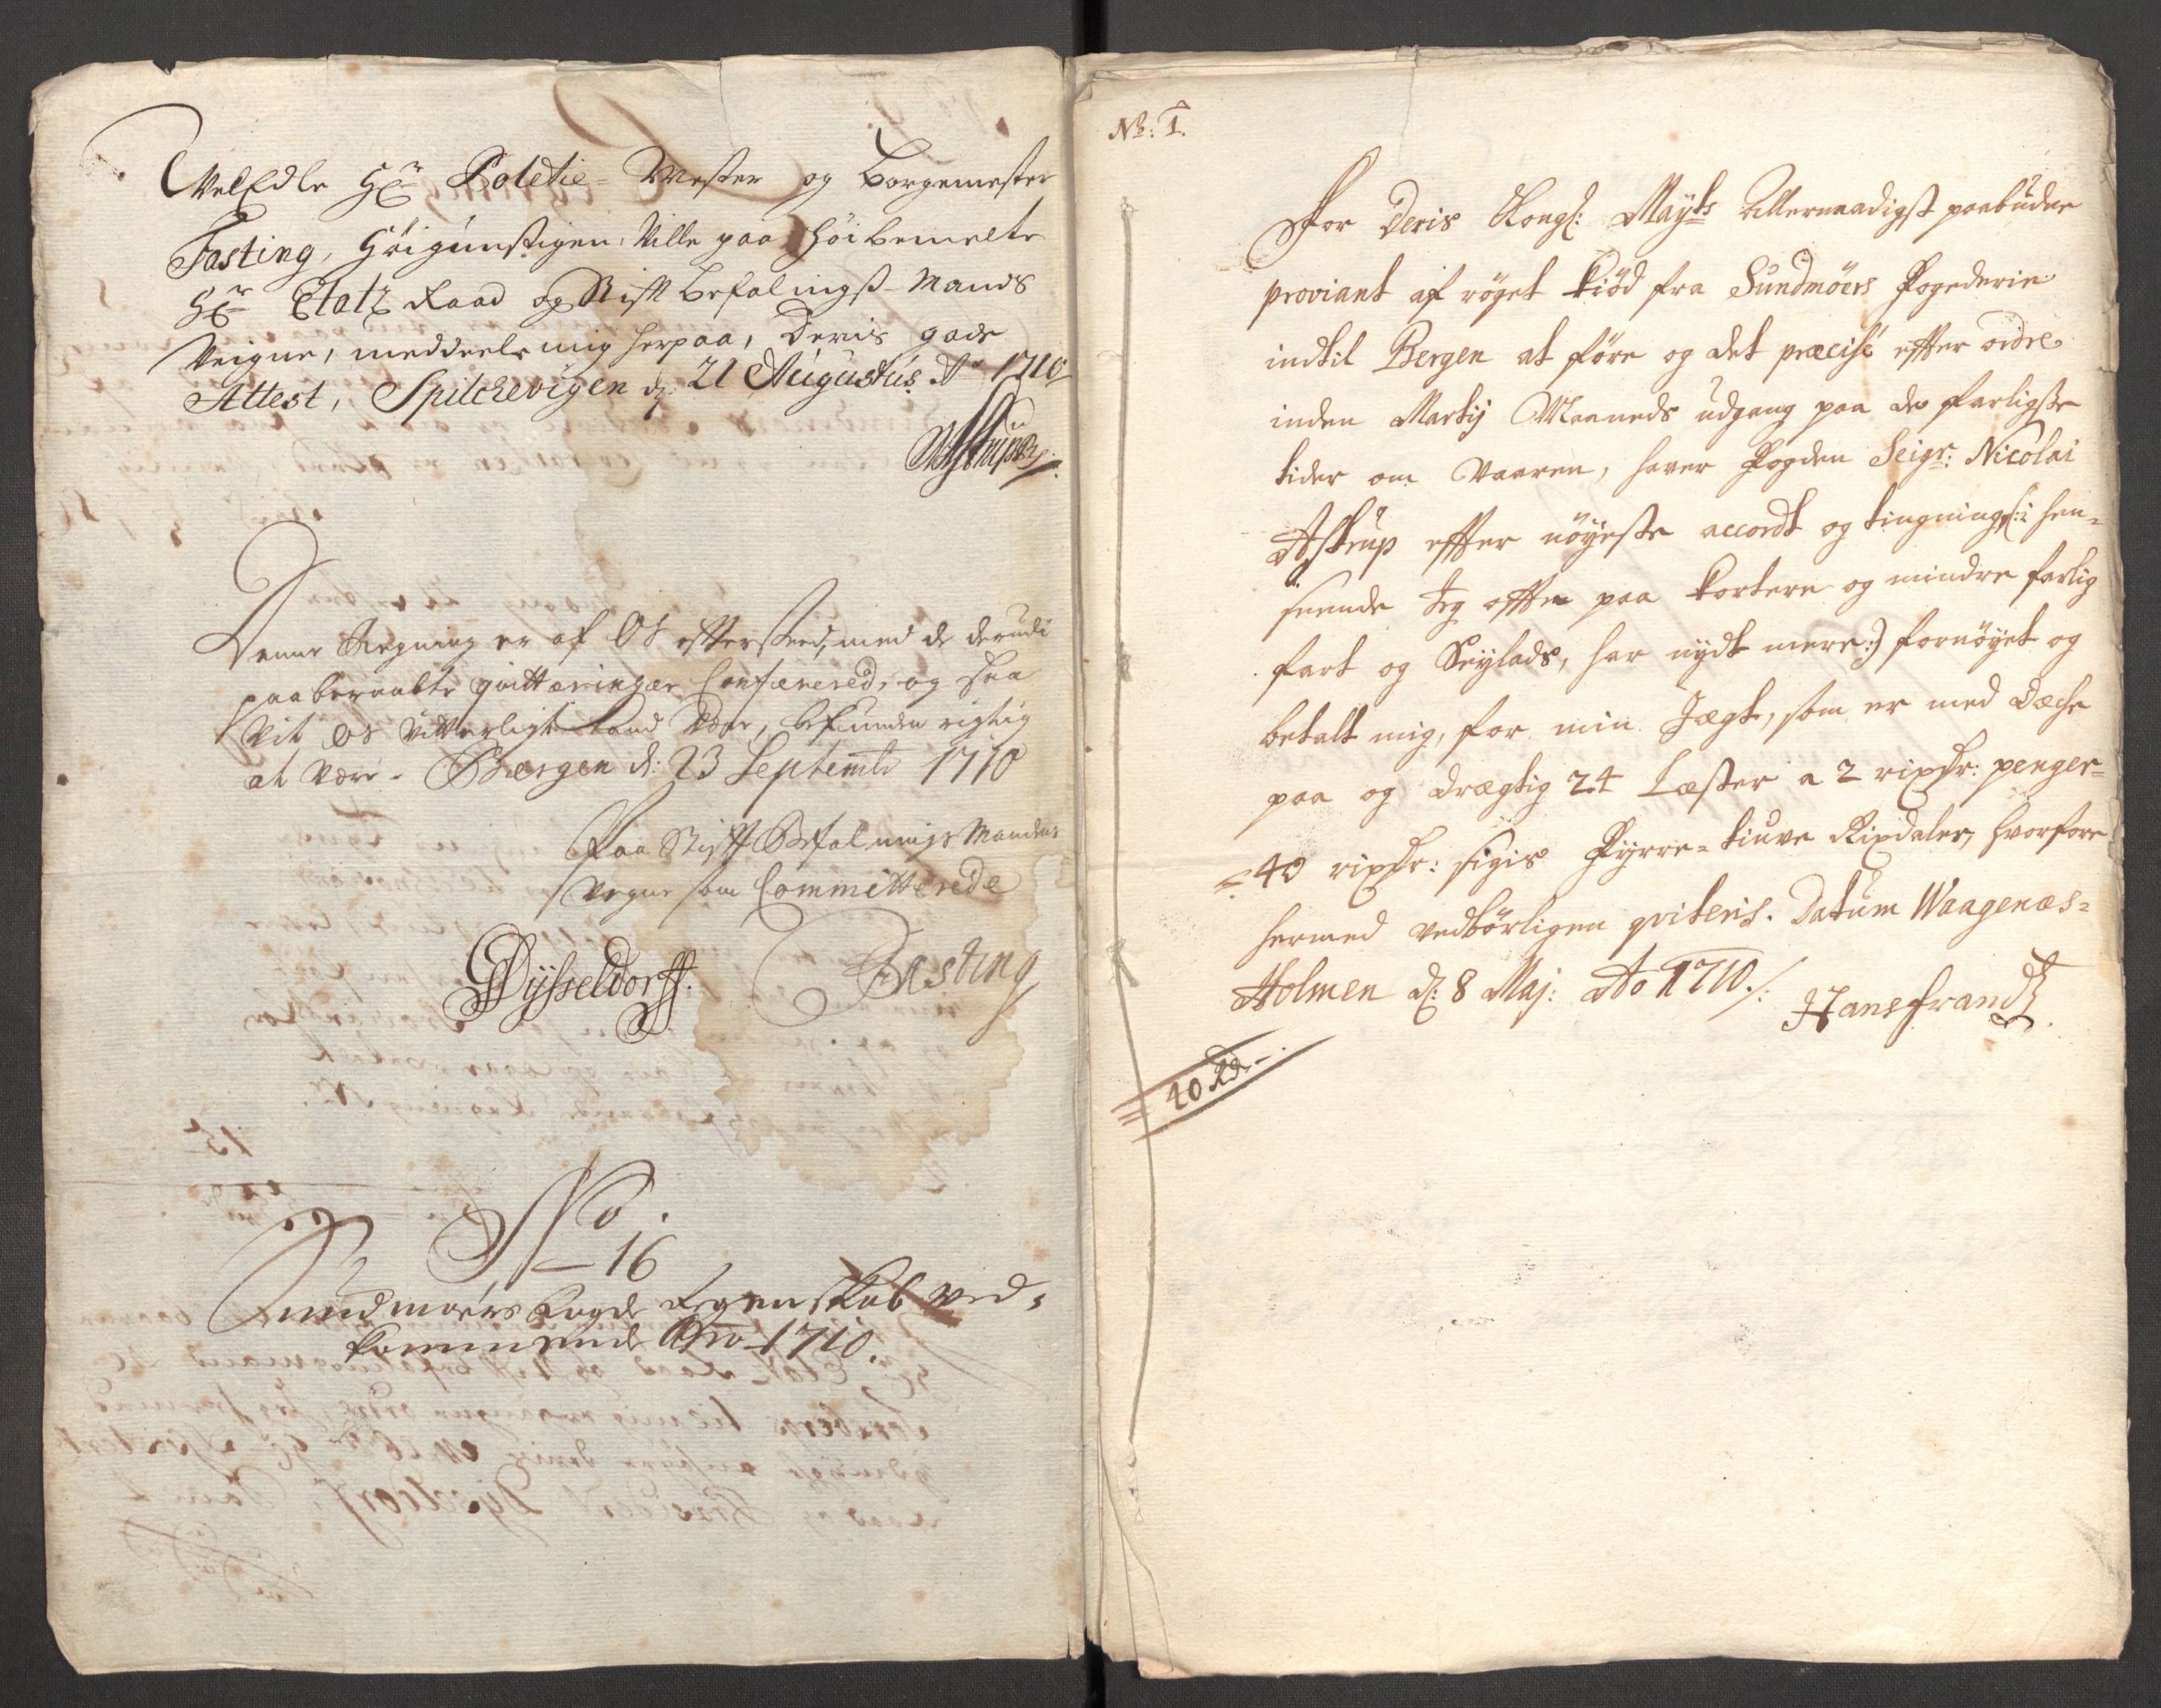 VelEdle Hr Poletie-Mester og Borgemester
Fasting, Høigunstigen, Ville paa Høibemelte
Hr Etatz Raad og Stift Befalingst-Mands
Veigne, meddeele mig herpaa, Deris gode
Attest, Spilchevigen d: 21 Augustus Ao 1710
NAstrup
Denne Regning er af Os effterseed, med de derudi
paaberaabte qvitteringer Confærered, og saa
Vit Os Vitterligt kand Være, befunden rigtig
at Være. Bergen d: 23 Septembr 1710
Paa Stifft Befalnings Mandens
Vegne som Committerede
Dÿsseldorff. Fasting
No.
16
Sundmøers Fogde Regenskab ved-
kommende Ano 1710.
No: 1.
For Deris Kongl: Mayts Allernaadigst paabudne
proviant af røget Kiød fra Sundmøers Fogederie
indtil Bergen at føre og det præcise effter ordre
inden Martij Maaneds udgang paa de farligste
tider om Vaaren, haver Fogden Seigr: Nicolai
Astrup effter nøyeste accordt og tingning (: i hen-
seende Jeg offte paa kortere og mindre farlig
fart og Seylads, har nydt mere :) fornøyet og
betalt mig, for min Jægt, som er med Dæche
paa og drægtig 24 Læster a 2 rixdr: penger-
= 40 rixdr: sigis Fyrre-tiuve Rixdaler, hvorfore
hermed vedbørligen qviteris. Datum Waagenæs-
Holmen d: 8 Maj: Ao 1710./.
Hans Frandtz.
40 Rd -.